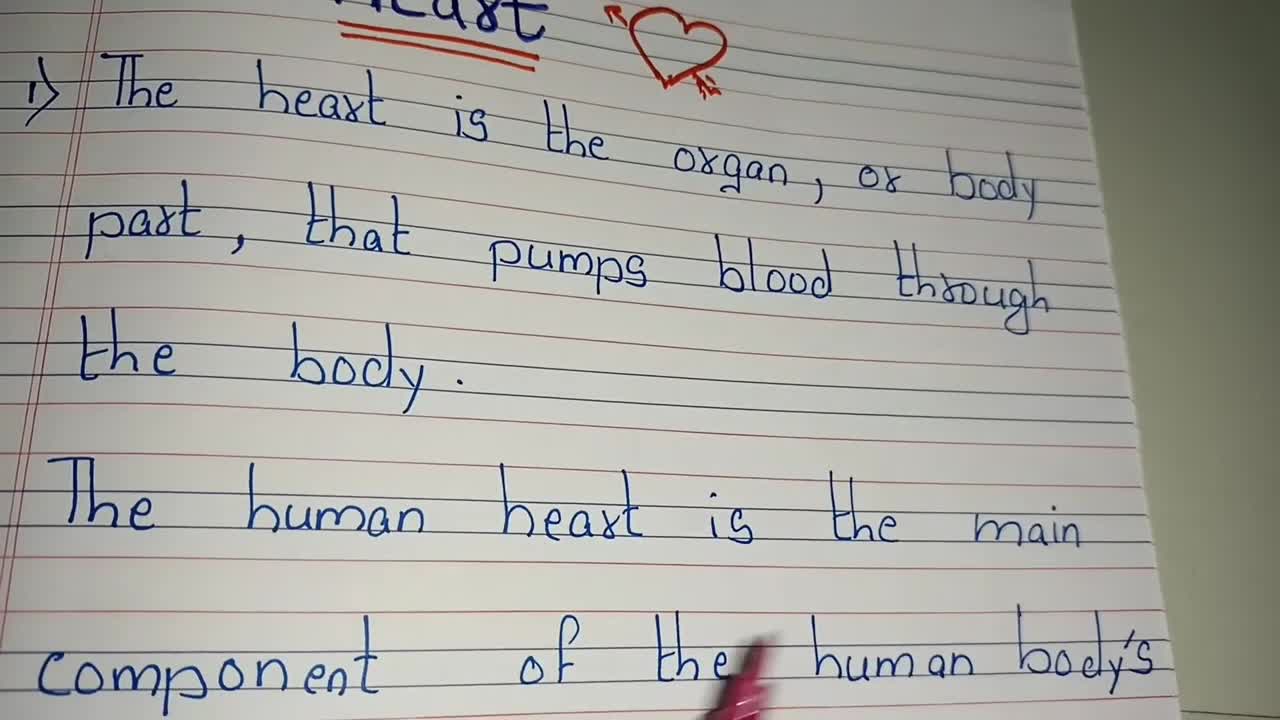 Heart
1) The heart is the organ, or body
part, that pumps blood through
the body.
The human heart is the main
component of the human body's